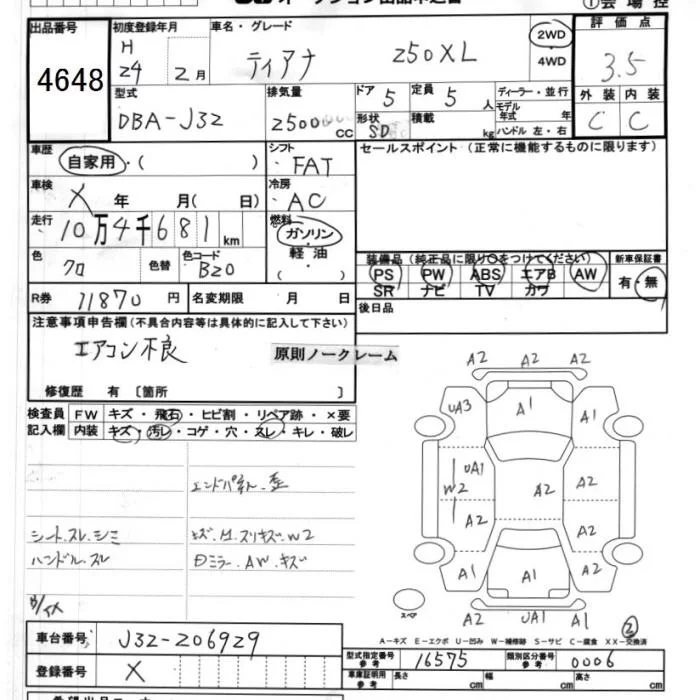 ①会場控
出品番号 初度登録年月 車名・グレード 2WD 評価点
4648 H 24 2月 ティアナ 250XL ・4WD 3.5
型式 排気量 ドア 5 定員 5人 ディーラー・並行 外装 内装
DBA-J32 2500 CC 形状 SD 積載 kg モデル年式 年 ハンドル 左・右 C C
車歴 自家用・( ) シフト ・FAT セールスポイント(正常に機能するものに限ります)
車検 X 年 月( 日) 冷房 ・AC
走行 10万4千681km 燃料 ガソリン・軽油・( )
色 クロ 色替 色コード B20
装備品(純正品に限り○をつけてください) 新車保証書
PS PW ABS エアB AW 有・無
SR ナビ TV カワ
R券 11870円 名変期限 月 日 後日品
注意事項申告欄(不具合内容等は具体的に記入して下さい)
エアコン不良
原則ノークレーム
修復歴 有 〔箇所 〕
検査員 FW キズ・飛石・ヒビ割・リペア跡・×要
記入欄 内装 キズ・汚レ・コゲ・穴・スレ・キレ・破レ
シート.スレ.シミ
ハンドル.スレ
ヒズ.M.スリキズ.W2
Dミラー.AW.キズ
A2 A2 A2
UA3 A1
UA1 W2 A2 A2
A2 A2
A1 A1 A2
A2 UA1 A1
スペア
②
A-キズ E-エクボ U-凹み W-補修跡 S-サビ C-腐食 XX-交換済
車台番号 J32-206929
登録番号 X
型式指定番号 参考 16575 類別区分番号 参考 0006
車庫証明用 参考 長さ cm 幅 cm 高さ cm